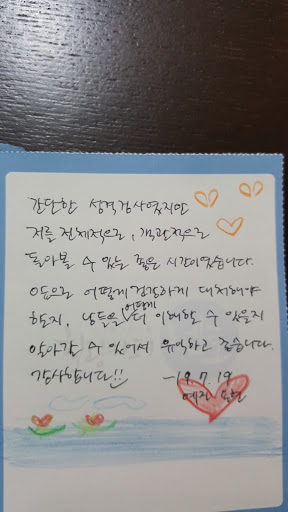 간단한 성격검사였지만
저를 전체적으로, 객관적으로
돌아볼 수 있는 좋은 시간이었습니다.
앞으로 어떻게 건강하게 대처해야
할지, 남들을 어떻게 더 이해할 수 있을지
알아갈 수 있어서 유익하고 좋습니다.
감사합니다!!
-19.7.19
예진